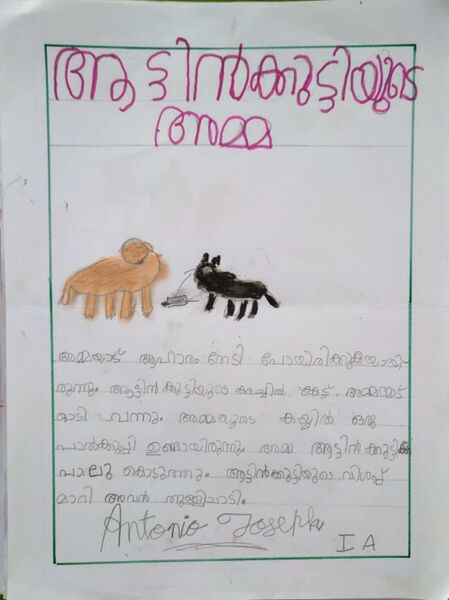 ആട്ടിൻക്കുട്ടിയുടെ
അമ്മ
അമ്മയാട് ആഹാരം തേടി പോയിരിക്കുകയായി-
രുന്നു. ആട്ടിൻ കുട്ടിയുടെ കരച്ചിൽ കേട്ട് അമ്മയാട്
ഓടി വന്നു. അമ്മയുടെ കയ്യിൽ ഒരു
പാൽക്കുപ്പി ഉണ്ടായിരുന്നു. അമ്മ ആട്ടിൻ കുട്ടിക്ക്
പാലു കൊടുത്തു. ആട്ടിൻകുട്ടിയുടെ വിശപ്പ്
മാറി അവൻ തുള്ളിചാടി.
Antonio Joseph
I A